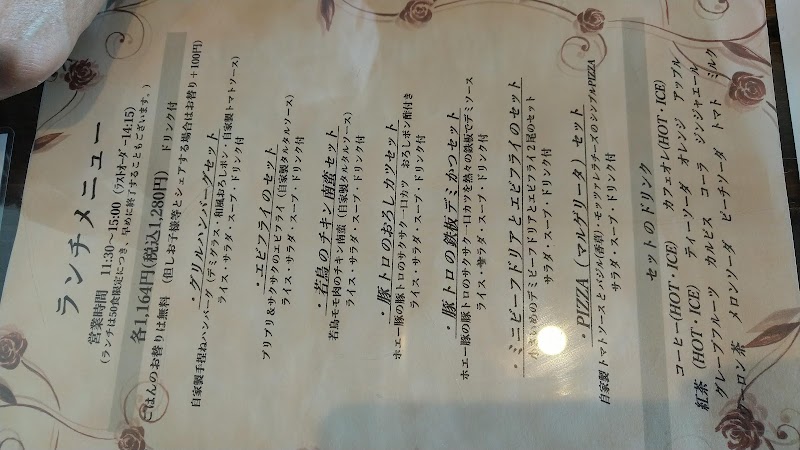 ランチメニュー
営業時間 11:30~15:00 (ラストオーダー14:15)
(ランチは50食限定につき、早めに終了することもございます。)
各1,164円(税込1,280円) ドリンク付
ごはんのお替りは無料 (但しお子様等とシェアする場合はお替り+100円)
・グリルハンバーグセット
自家製手捏ねハンバーグ(デミグラス・和風おろしポン・自家製トマトソース)
ライス・サラダ・スープ・ドリンク付
・エビフライのセット
プリプリ&サクサクのエビフライ(自家製タルタルソース)
ライス・サラダ・スープ・ドリンク付
・若鳥のチキン南蛮セット
若鳥モモ肉のチキン南蛮(自家製タルタルソース)
ライス・サラダ・スープ・ドリンク付
・豚トロのおろしカツセット
ホエー豚の豚トロのサクサク一口カツ おろしポン酢付き
ライス・サラダ・スープ・ドリンク付
・豚トロの鉄板デミかつセット
ホエー豚の豚トロのサクサク一口カツを熱々の鉄板でデミソース
ライス・サラダ・スープ・ドリンク付
・ミニビーフドリアとエビフライのセット
小さいめのデミビーフドリアとエビフライ2尾のセット
サラダ・スープ・ドリンク付
・PIZZA(マルゲリータ)セット
自家製トマトソースとバジル(香草)・モッツァレラチーズのシンプルPIZZA
サラダ・スープ・ドリンク付
セットのドリンク
コーヒー(HOT・ICE) カフェオレ(HOT・ICE)
紅茶(HOT・ICE) ティーソーダ オレンジ アップル
グレープフルーツ カルピス コーラ ジンジャエール
ウーロン茶 メロンソーダ ピーチソーダ トマト ミルク